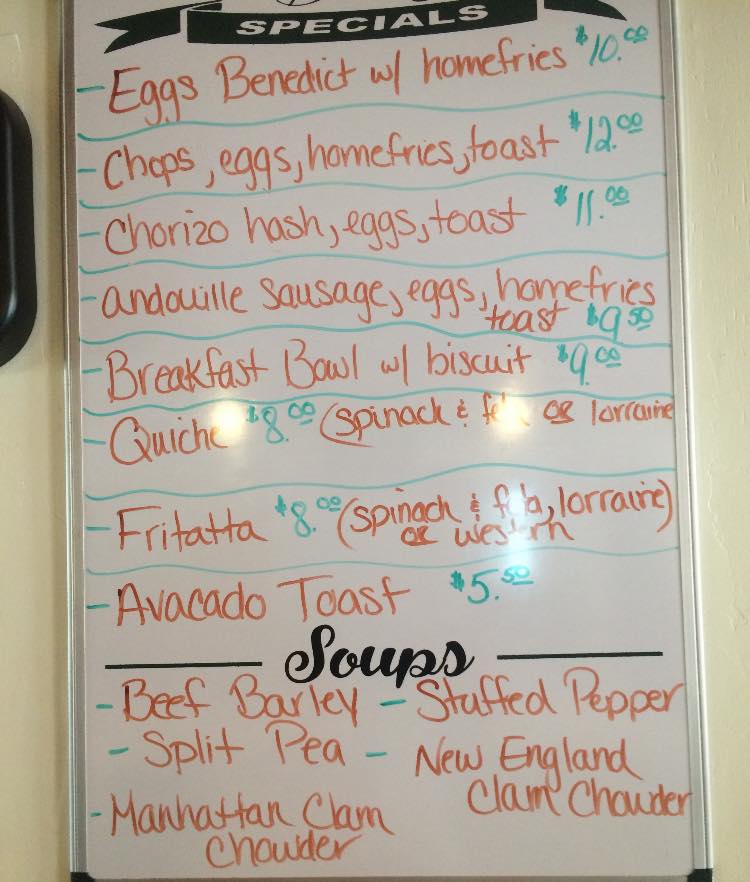 SPECIALS
- Eggs Benedict w/ homefries $10.00
- Chops, eggs, homefries, toast $12.00
- Chorizo hash, eggs, toast $11.00
- andouille sausage, eggs, homefries
toast $9.50
- Breakfast Bowl w/ biscuit $9.00
- Quiche $8.00 (spinach & feta OR lorraine
- Fritatta $8.00 (spinach & feta, lorraine)
OR western
- Avacado Toast $5.50
Soups
- Beef Barley - Stuffed Pepper
- Split Pea - New England
Clam Chowder
- Manhattan Clam
Chowder